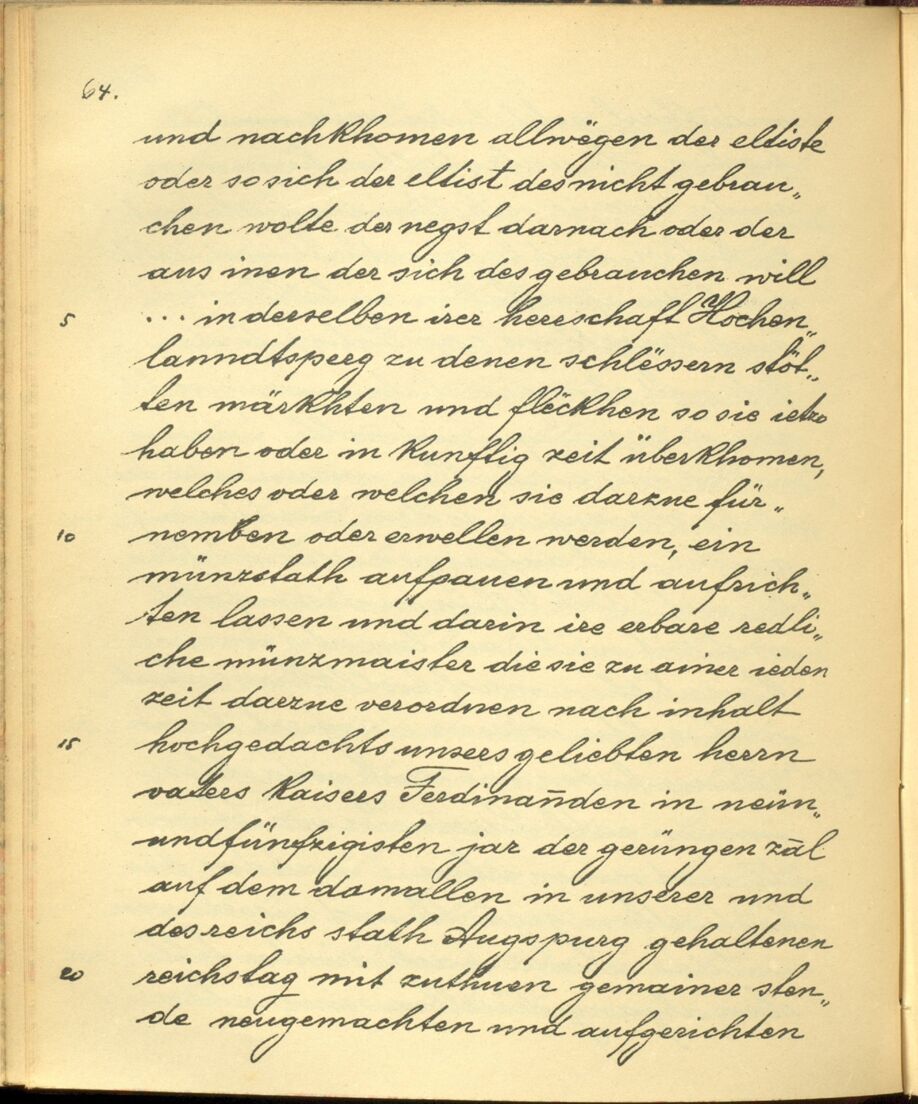 64.
und nachkhomen allwëgen der eltiste
oder so sich der eltist des nicht gebrau„
chen wolte der negst darnach oder der
aus inen der sich des gebrauchen will
5 ... in derselben irer herrschaft Hochen„
lanndtsperg zu denen schlëssern stöt„
ten märkhten und flëckhen so sie ietzo
haben oder in kunftig zeit überkhomen,
welches oder welchen sie darzue für„
10 nemben oder erwellen werden, ein
münzstath aufpauen und aufrich„
ten lassen und darin ire erbare redli„
che münzmaister die sie zu ainer ieden
zeit darzue verordnen nach inhalt
15 hochgedachts unsers geliebten herrn
vaters kaisers Ferdinan̄den in neün„
undfünfzigisten jar der gerüngen zāl
auf dem damallen in unserer und
des reichs stath Augspurg gehaltenen
20 reichstag mit zuthuen gemainer sten„
de neugemachten und aufgerichten